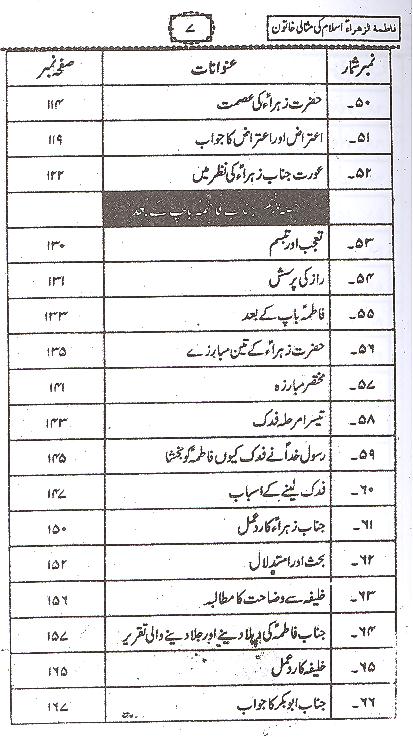 فاطمۃ الزھراءؑ اسلام کی مثالی خاتون ۷
نمبر شمار عنوانات صفحہ نمبر
۵۰۔ حضرت زہراءؑ کی عصمت ۱۱۴
۵۱۔ اعتراض اور اعتراض کا جواب ۱۱۹
۵۲۔ عورت جناب زہراءؑ کی نظر میں ۱۲۲
فاطمہؑ باپ کے بعد
۵۳۔ تعجب اور تبسم ۱۳۰
۵۴۔ راز کی پرسش ۱۳۱
۵۵۔ فاطمہؑ باپ کے بعد ۱۳۳
۵۶۔ حضرت زہراءؑ کے تین مبارزے ۱۳۵
۵۷۔ مختصر مبارزہ ۱۴۱
۵۸۔ تیسرا مرحلہ فدک ۱۴۳
۵۹۔ رسول خداؐ نے فدک کیوں فاطمہؑ کو بخشا ۱۴۵
۶۰۔ فدک لینے کے اسباب ۱۴۷
۶۱۔ جناب زہراءؑ کا ردعمل ۱۵۰
۶۲۔ بحث اور استدلال ۱۵۲
۶۳۔ خلیفہ سے وضاحت کا مطالبہ ۱۵۶
۶۴۔ جناب فاطمہؑ کی دہلا دینے اور جلا دینے والی تقریر ۱۵۷
۶۵۔ خلیفہ کا ردعمل ۱۶۵
۶۶۔ جناب ابوبکر کا جواب ۱۶۷